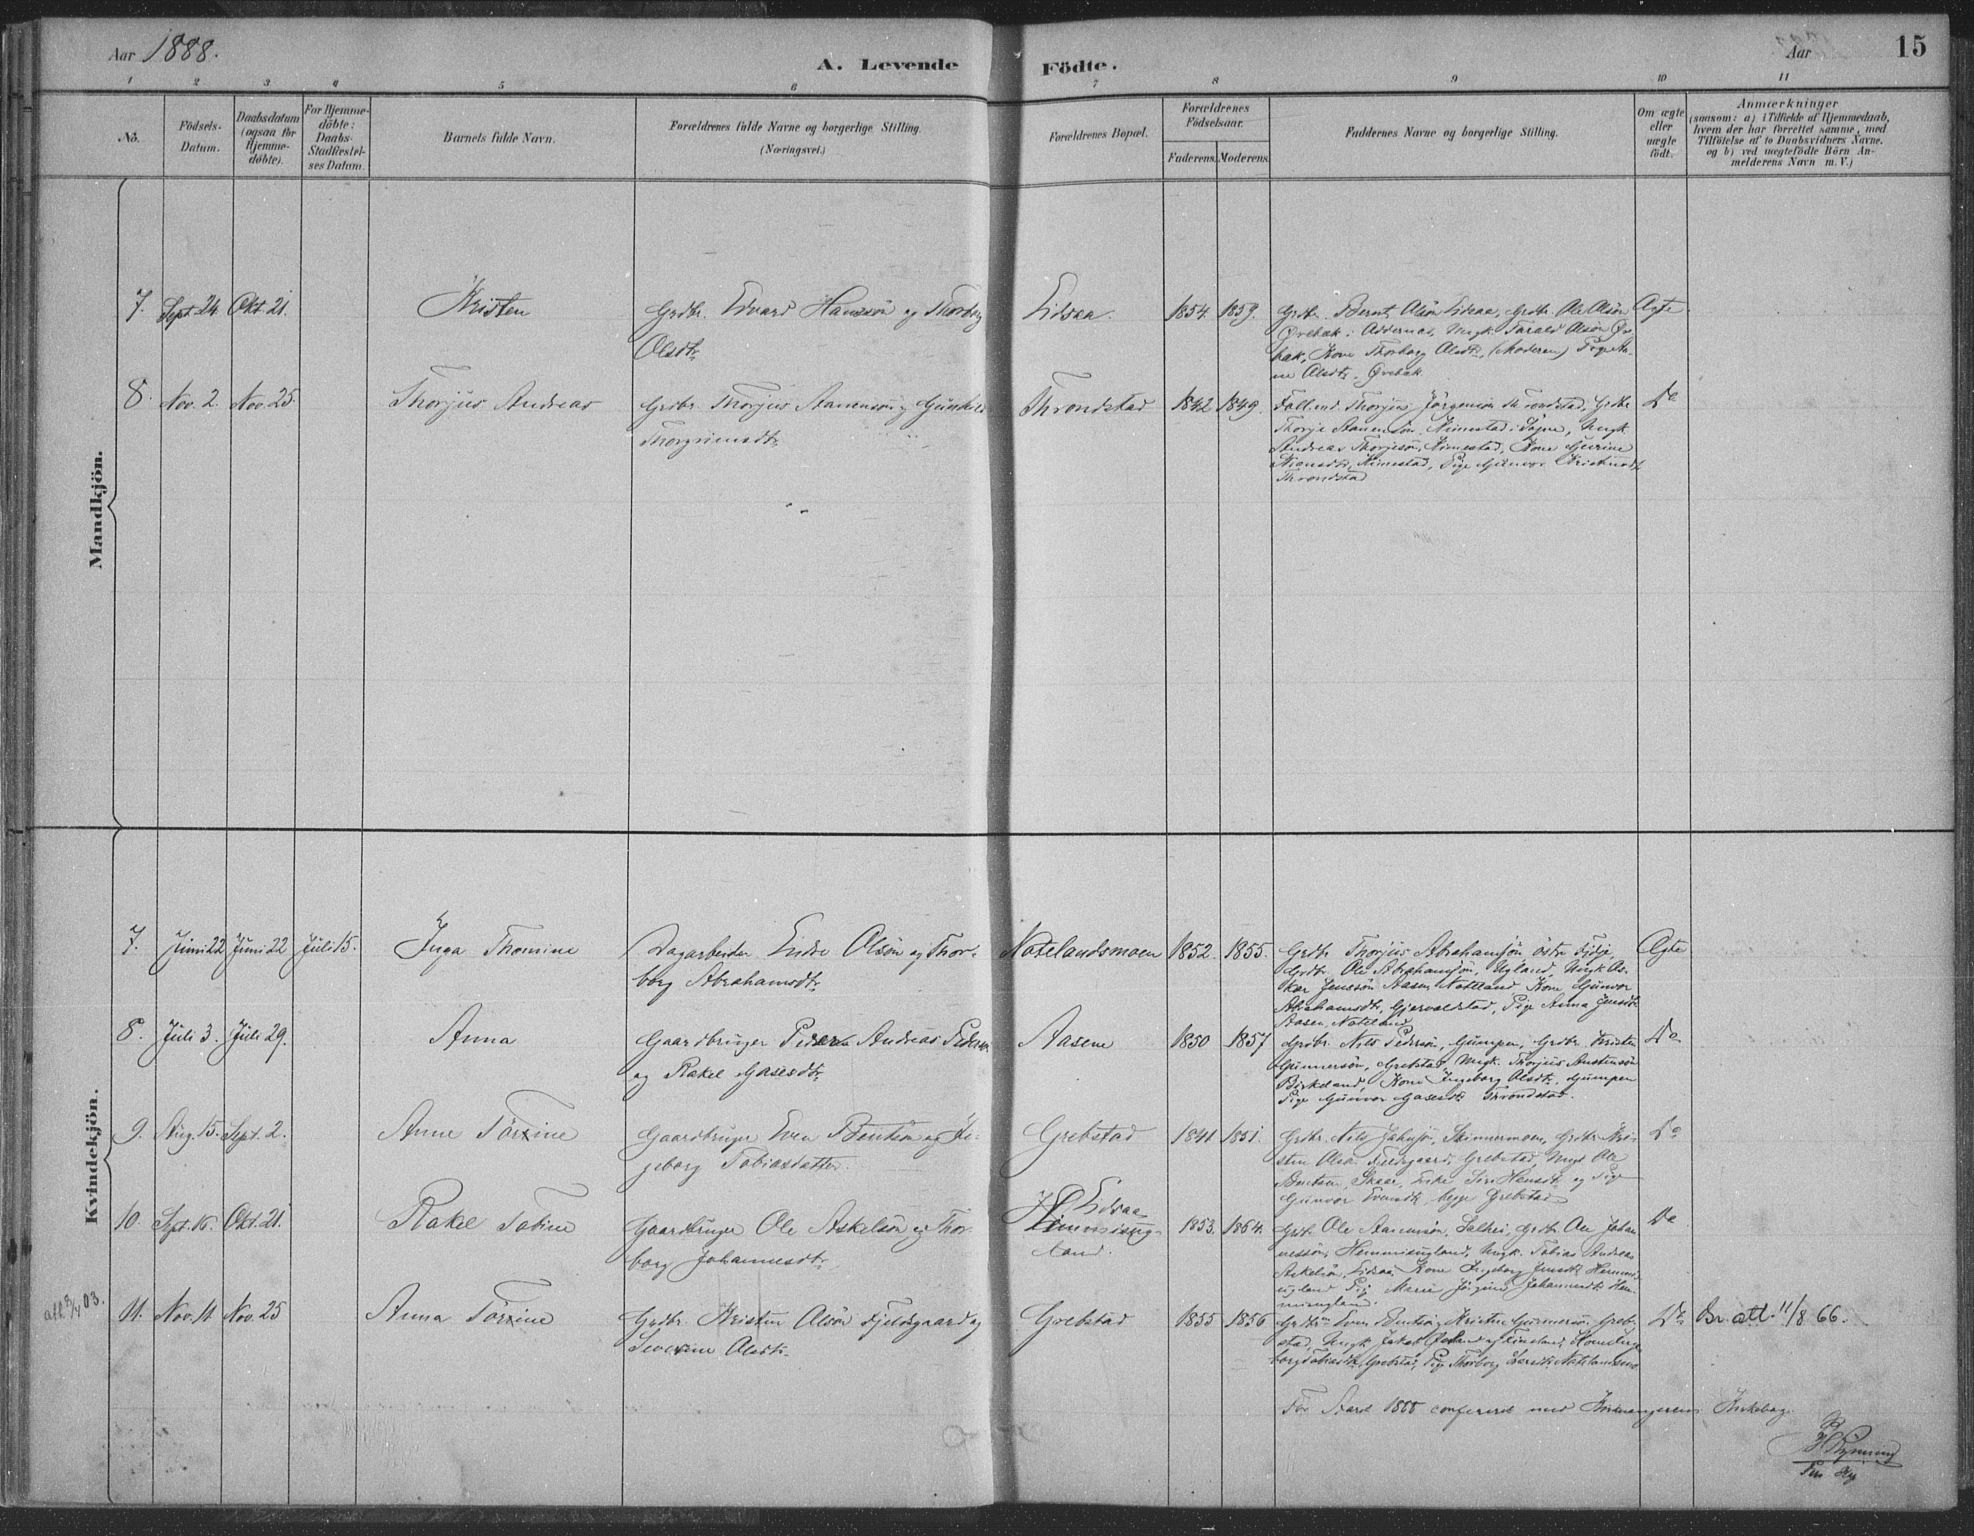 Aar 1888.
A. Levende Födte.
Aar
15
1 2 3 4 5 6 7 8 9 10 11
No.
Födsels-
Datum.
Daabsdatum
(ogsaa for
Hjemme-
døbte).
For Hjemme-
døbte:
Daabs-
Stadfestel-
ses Datum.
Barnets fulde Navn.
Forældrenes fulde Navne og borgerlige Stilling.
(Næringsvei.)
Forældrenes Bopæl.
Forældrenes
Födselsaar.
Faderens. Moderens.
Faddernes Navne og borgerlige Stilling.
Om ægte
eller
uægte
født.
Anmærkninger
(saasom: a) i Tilfælde af Hjemmedaab,
hvem der har forrettet samme, med
Tilføielse af to Daabsvidners Navne.
og b) ved uægtefødte Börn An-
melderens Navn m. V.)
Mandkjön.
7. Sept. 24. Okt. 21. Kristen
Grdbr. Edvard Hanssön og Thorborg
Olsdtr.
Eidsaa. 1854. 1859.
Grdbr. Bernt Olsön Eidsaa, Grdbr. Ole Olsön
Øvebak i Oddernes, Ungk. Harald Olsön Øve-
bak, Kone Thorborg Olsdtr. (Moderen) Pige An-
ne Olsdtr. Øvebak.
Ægte
8. Nov. 2. Nov. 25. Thorjus Andreas
Grdbr. Thorjus Aanensön og Gunhild
Thorgrimsdtr.
Throndstad 1842 1849.
Foll.md. Thorjus Jörgensön Throndstad, Grdbr.
Thorje Aanensön, Kimestad i Søgne, Ungk.
Andreas Thorjesön, Kimestad, Kone Gurine
Kimestad, Pige Gunvor
Throndstad
Do
Kvindekjön.
7. Juni 22 Juni 22 Juli 15. Inga Thomine
Dagarbeider Endre Olsön og Thor-
borg Abrahamsdtr.
Natelandsmoen 1852. 1855.
Grdbr. Thorjus Abrahamsön östre
Grdbr. Ole Abrahamsön, Ugland, Ungk. Os-
kar Jenssön Aasen, Natland, Kone Gunvor
Abrahamsdtr., Gjervoldstad, Pige Anna Jensdtr.
Aasen, Nateland
Ægte
8. Juli 3. Juli 29. Anna
Gaardbruger Peder Andreas Peders.
og Rakel Gasesdtr.
Aasene 1850 1857
Grdbr. Nils Pedersön, Gumpen, Grdbr. Kristen
Gunnersön, Grebstad, Ungk. Thorjus Austensön
Birkeland, Kone Ingeborg Olsdtr., Gumpen
Pige Gunvor Gasesdtr. Throndstad.
Do
9. Aug. 15. Sept. 2. Anne Torine
Gaardbruger Even Bentsön og In-
geborg Tobiasdatter.
Grebstad 1841 1851.
Grdbr. Nils Skinnermoen, Grdbr. Kri-
sten Olsön Fjeldsgaard, Grebstad, Ungk. Ole
Bentsen, Skaar, Enke Siri Hansdtr. og Pige
Gunvor Evensdtr. begge Grebstad
Do
10. Sept. 16. Okt. 21. Rakel Tobine
Gaardbruger Ole Askelsön og Thor-
borg Johannesdtr.
Eidsaa
Himmisug-
land.
1853. 1864.
Grdbr. Ole Aanensön, Grdbr. Ole Johan-
nessön, Hemmisugland, Ungk. Tobias Andreas
Askelsön, Eidsaa, Kone Ingeborg Hemmis-
ugland, Pige Marie Jörgine Johannesdtr. Hem-
misugland.
Do
att. 8/4 03.
11. Nov. 11 Nov. 25 Anna Torine
Grdbr. Kristen Olsön Fjeldsgaard og
Severine Olsdtr.
Grebstad 1855 1856
Grdbr. Even Bentsön, Kristen Gunnersön, Greb-
stad, Ungk. Jakob Finsland, Kone Inge-
borg Tobiasdtr., Grebstad, Pige Thorborg Natelandsmo.
Do
Br. att. 11/8 66.
For Aaret 1888 confereret med Kirkesangerens Kirkebog.